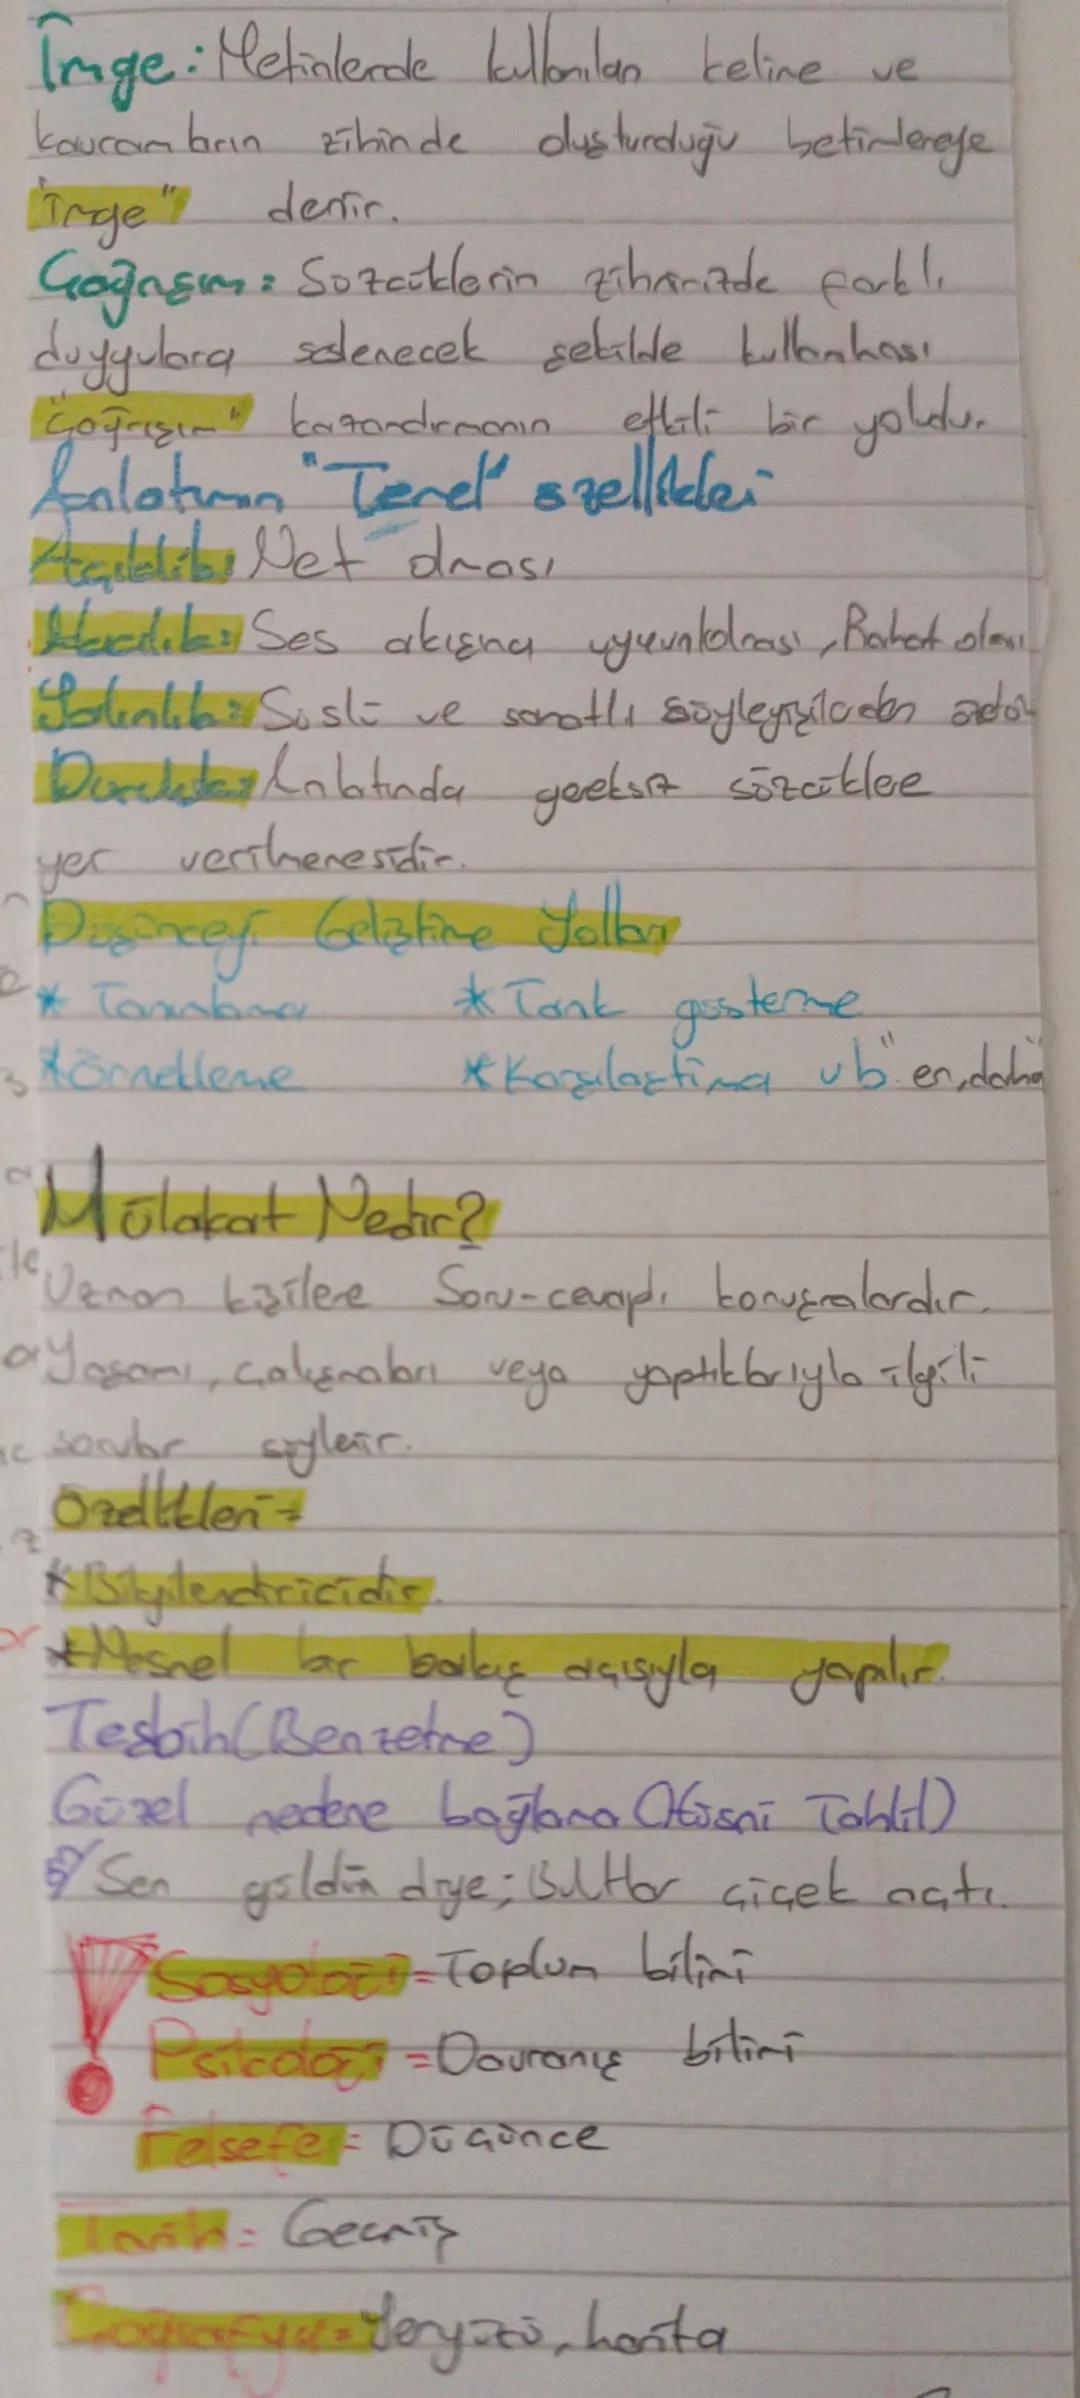 İmge: Metinlerde kullanılan kelime ve
kavramların zihinde oluşturduğu betimlemeye
"İmge" denir.
Çağrışım: Sözcüklerin zihnimizde farklı
duygulara seslenecek şekilde kullanılması
"Çağrışım" kazandırmanın etkili bir yoludur.
Anlatımın "Temel" özellikleri
Açıklık: Net olması
Akıcılık: Ses akışına uygun olması, Rahat olması
Yalınlık: Süslü ve sanatlı söyleyişilerden
Duruluk: Anlatımda gereksiz sözcüklere
yer verilmemesidir.
Düşünceyi Geliştirme Yolları
* Tanımlama * Tanık gösterme
* Örnekleme * Karşılaştırma vb "en, daha"
Mülakat Nedir?
Uzman kişilere Soru-cevaplı konuşmalardır.
Yaşamı, çalışmaları veya yaptıklarıyla ilgili
sorular söylenir.
Özellikleri =
* Bilgilendiricidir.
* Nesnel bir bakış açısıyla yapılır.
Teşbih (Benzetme)
Güzel nedene bağlama (Hüsni Tahlil)
Sen güldün diye; Bulutlar çiçek açtı.
Sosyoloji = Toplum bilimi
Psikoloji = Davranış bilimi
Felsefe = Düşünce
Tarih = Geçmiş
Coğrafya = Yeryüzü, harita